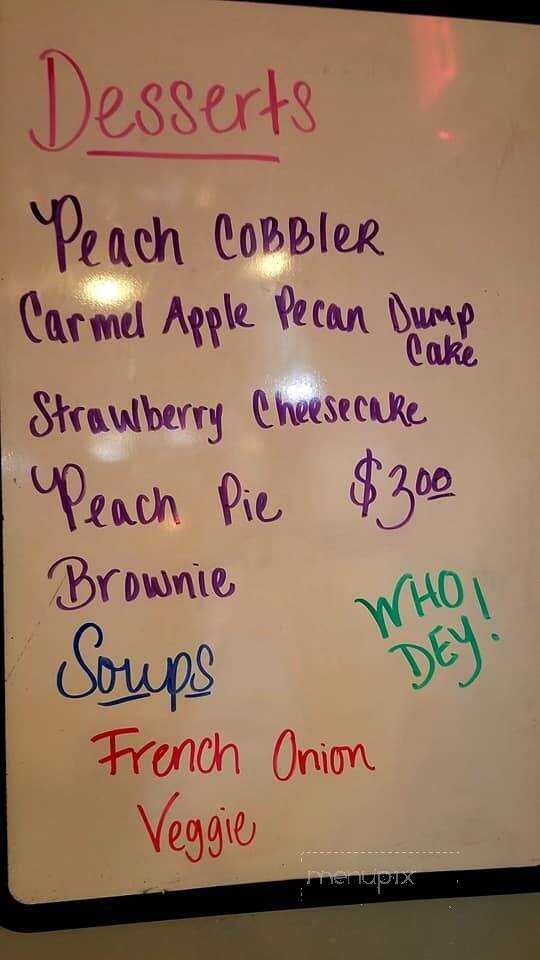 Desserts
Peach COBBlER
Carmel Apple Pecan Dump
Cake
Strawberry Cheesecake
Peach Pie $3.00
Brownie
WHO
DEY!
Soups
French Onion
Veggie
menupix